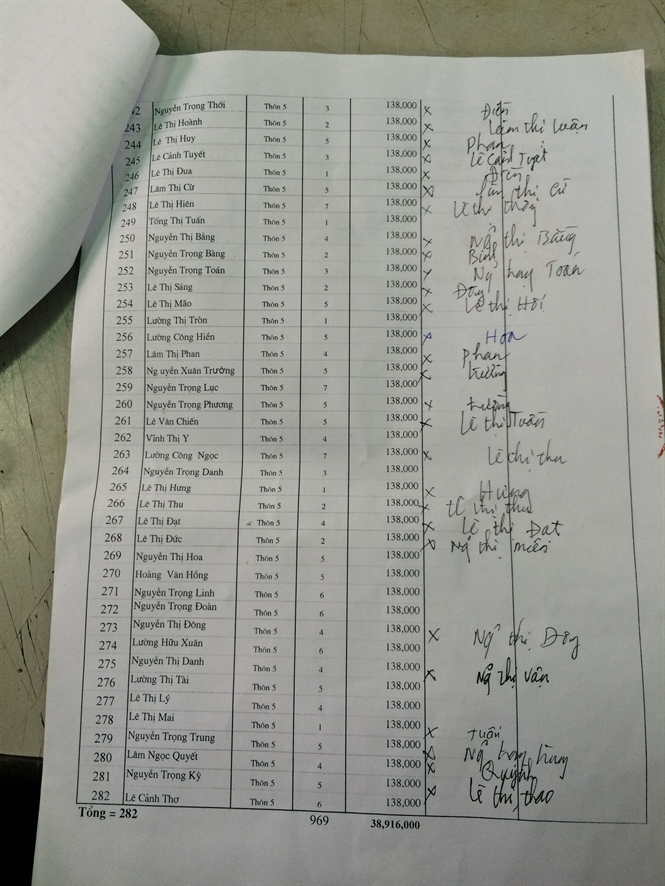 242 Nguyễn Trọng Thới Thôn 5 3 138,000 x Điền
243 Lê Thị Hoành Thôn 2 138,000 x Lâm thị Luận
244 Lê Thị Huy Thôn 5 5 138,000 x Phan
245 Lê Cảnh Tuyết Thôn 5 3 138,000 x Lê Cảnh Tuyết
246 Lê Thị Đua Thôn 5 1 138,000 x Điền
247 Lâm Thị Cừ Thôn 5 5 138,000 x thị Cừ
248 Lê Thị Hiên Thôn 5 7 138,000 x Lê thị
249 Tống Thị Tuấn Thôn 5 1 138,000
250 Nguyễn Thị Bảng Thôn 5 4 138,000 x thị Bảng
251 Nguyễn Trọng Bàng Thôn 5 2 138,000 x
252 Nguyễn Trọng Toán Thôn 5 3 138,000 x Toán
253 Lê Thị Sáng Thôn 5 2 138,000 x
254 Lê Thị Mão Thôn 5 5 138,000 x Lê thị
255 Lường Thị Tròn Thôn 5 1 138,000
256 Lường Công Hiền Thôn 5 5 138,000 x Hoa
257 Lâm Thị Phan Thôn 5 4 138,000 x Phan
258 Ng uyễn Xuân Trường Thôn 5 5 138,000 x trường
259 Nguyễn Trọng Lục Thôn 5 7 138,000
260 Nguyễn Trọng Phương Thôn 5 5 138,000 x
261 Lê Văn Chiến Thôn 5 5 138,000 x Lê thị Tuấn
262 Vĩnh Thị Y Thôn 5 4 138,000
263 Lường Công Ngọc Thôn 5 7 138,000 x Lê thị thu
264 Nguyễn Trọng Danh Thôn 5 3 138,000
265 Lê Thị Hưng Thôn 5 1 138,000 x Hưng
266 Lê Thị Thu Thôn 5 2 138,000 x thị thu
267 Lê Thị Đạt Thôn 5 4 138,000 x Lê thị Đạt
268 Lê Thị Đức Thôn 5 2 138,000 x Ng thị miền
269 Nguyễn Thị Hoa Thôn 5 5 138,000
270 Hoàng Văn Hồng Thôn 5 5 138,000
271 Nguyễn Trọng Linh Thôn 5 6 138,000
272 Nguyễn Trọng Đoàn Thôn 5 6 138,000
273 Nguyễn Thị Đông Thôn 5 4 138,000 x thị Đông
274 Lường Hữu Xuân Thôn 5 6 138,000
275 Nguyễn Thị Danh Thôn 5 4 138,000 x thị Vân
276 Lường Thị Tài Thôn 5 5 138,000
277 Lê Thị Lý Thôn 5 4 138,000
278 Lê Thị Mai Thôn 5 1 138,000 x Tuấn
279 Nguyễn Trọng Trung Thôn 5 5 138,000 x trung
280 Lâm Ngọc Quyết Thôn 5 4 138,000 x
281 Nguyễn Trọng Kỳ Thôn 5 5 138,000
282 Lê Cảnh Thơ Thôn 5 6 138,000 x Lê thị thao
Tổng = 282 969 38,916,000